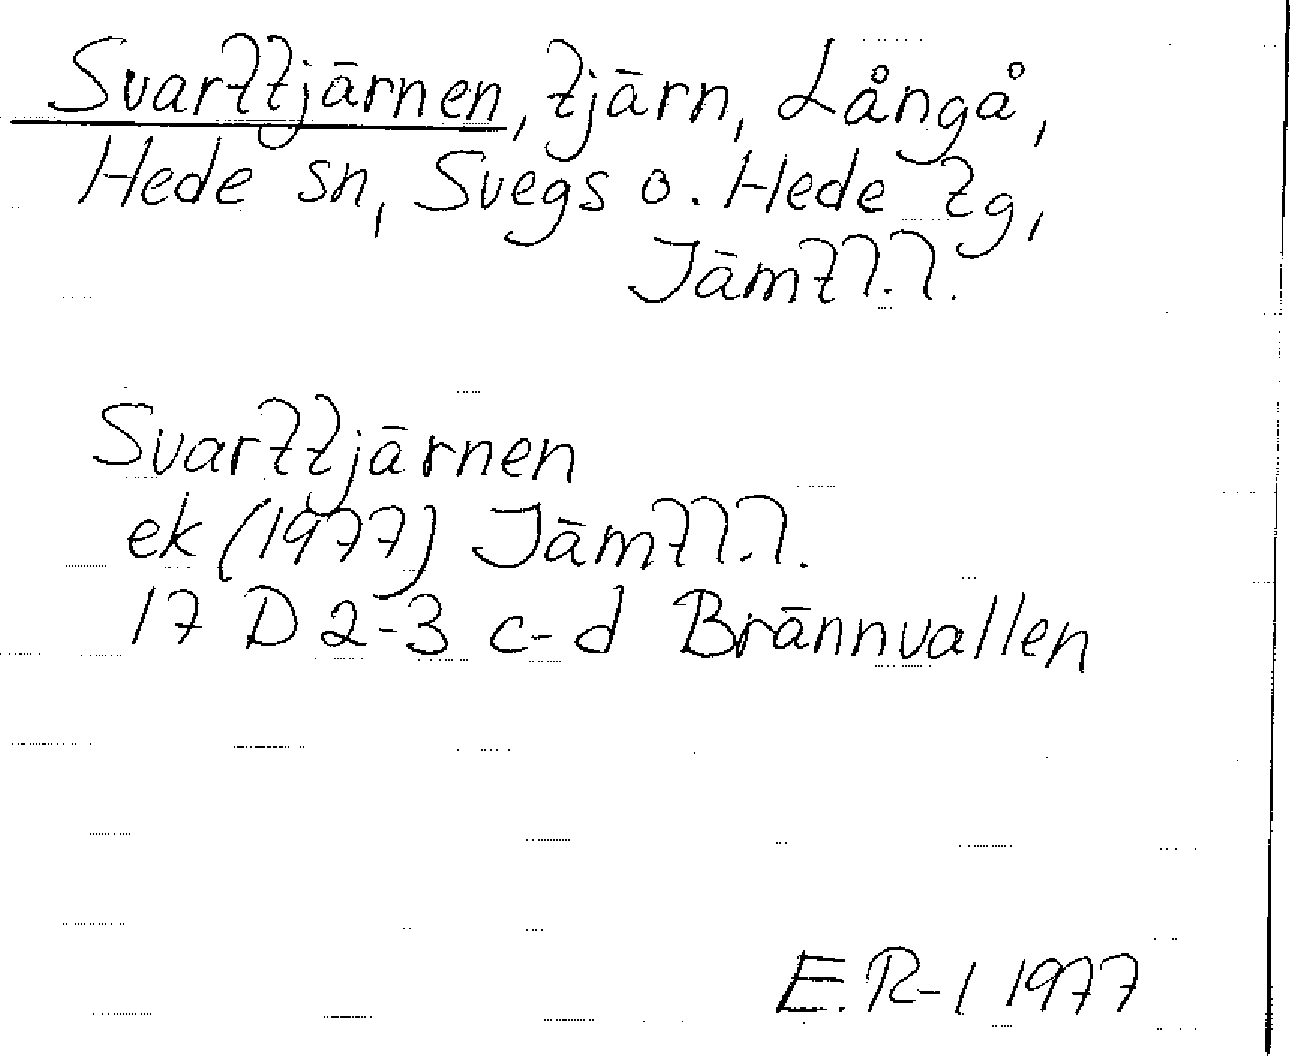 Svarttjärnen, tjärn, Långå,
Hede sn, Svegs o. Hede tg,
Jämtl.l.
Svarttjärnen
ek (1977) Jämtl.l.
17 D 2-3 c-d Brännvallen
E.R-l 1977